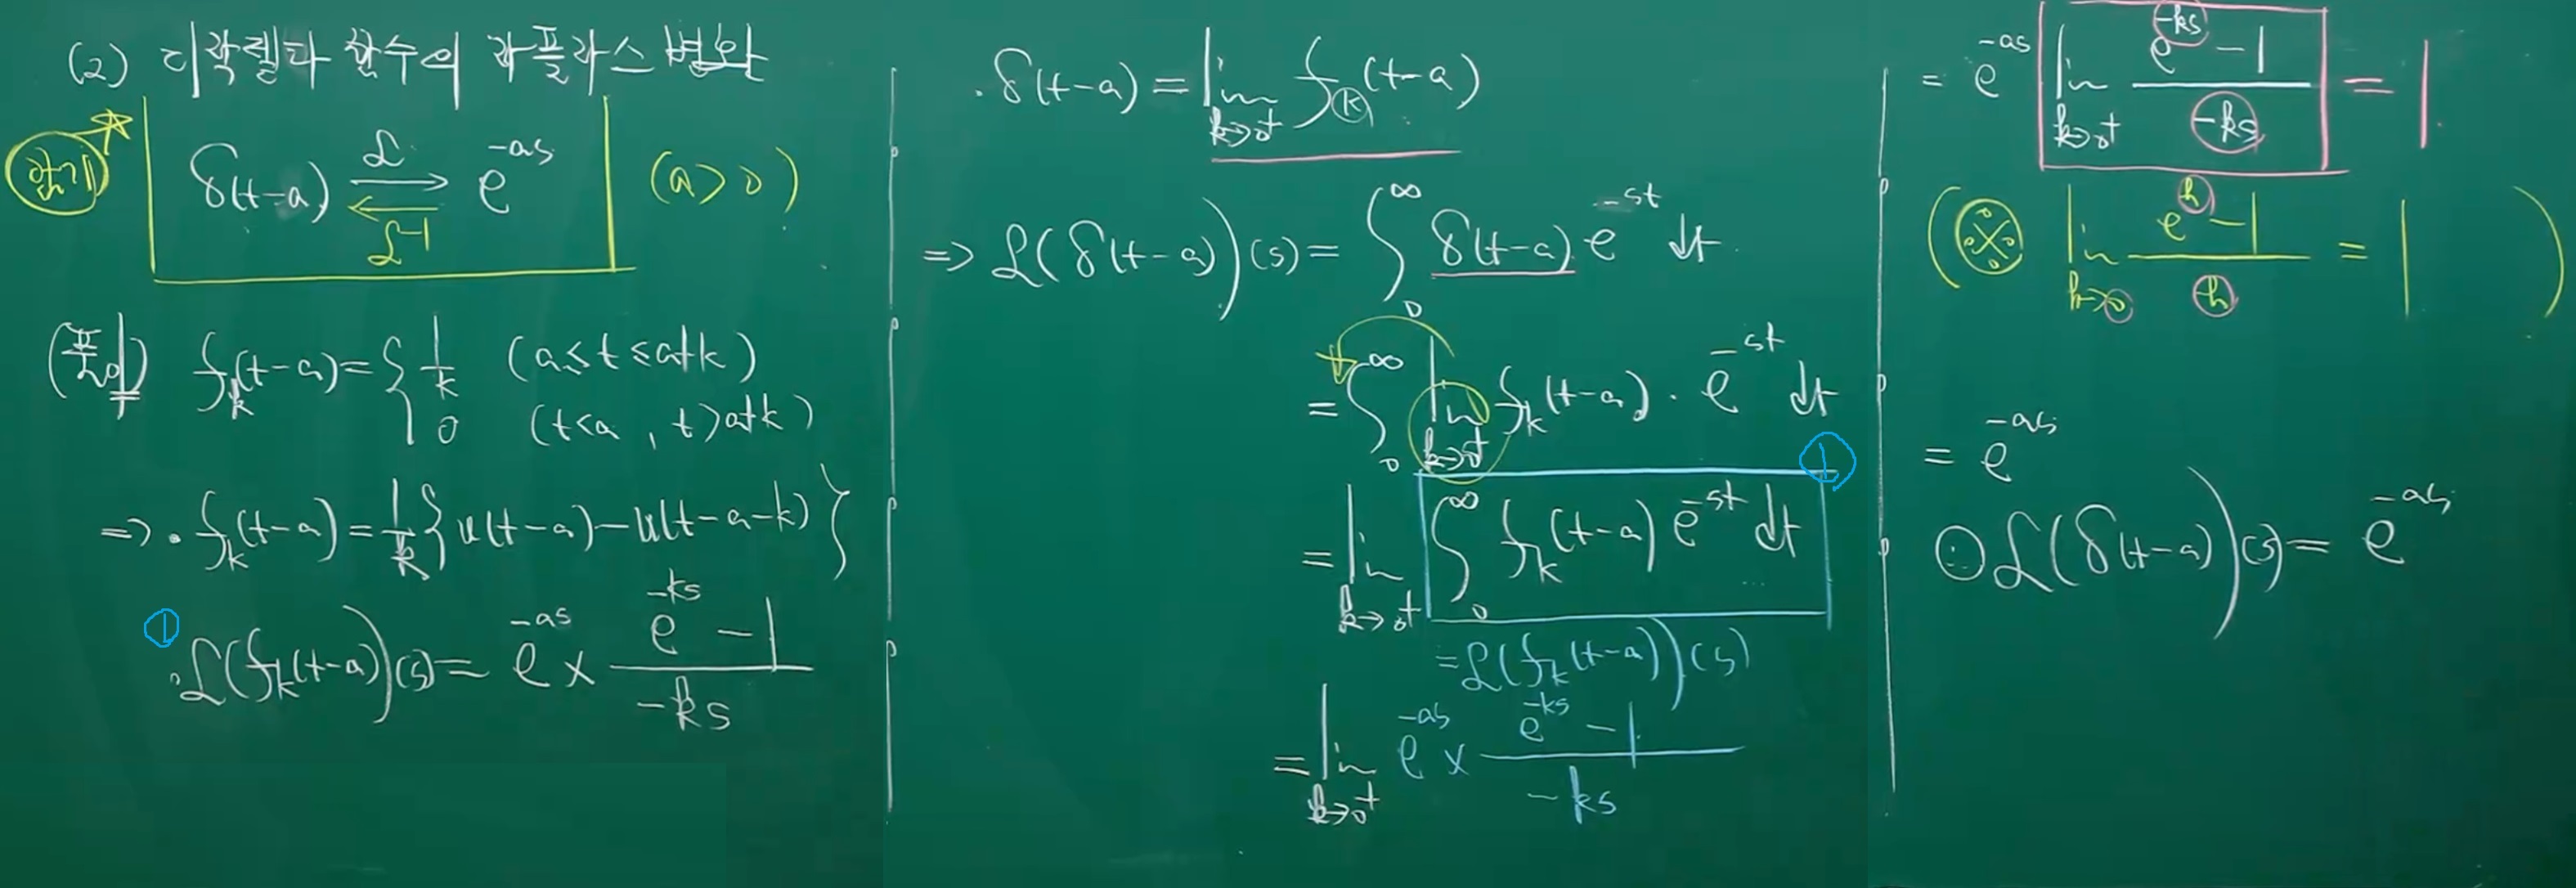 (2) 디락델타 함수의 라플라스 변환
암기 ☆
δ(t-a) ⇄ e^{-as} (a>0)
ℒ
ℒ^{-1}
(풀이) f_k(t-a) = { 1/k (a≤t≤a+k)
0 (t<a, t>a+k)
=> · f_k(t-a) = 1/k { u(t-a) - u(t-a-k) }
① · ℒ(f_k(t-a))(s) = e^{-as} × (e^{-ks} - 1)/(-ks)
· δ(t-a) = lim_{k→0+} f_k(t-a)
=> ℒ(δ(t-a))(s) = ∫_0^∞ δ(t-a) e^{-st} dt
= ∫_0^∞ lim_{k→0+} f_k(t-a) · e^{-st} dt
①
= lim_{k→0+} ∫_0^∞ f_k(t-a) e^{-st} dt
= ℒ(f_k(t-a))(s)
= lim_{k→0+} e^{-as} × (e^{-ks} - 1)/(-ks)
= e^{-as} lim_{k→0+} (e^{-ks} - 1)/(-ks) = 1
( ※ lim_{h→0} (e^h - 1)/h = 1 )
= e^{-as}
⊙ ℒ(δ(t-a))(s) = e^{-as}